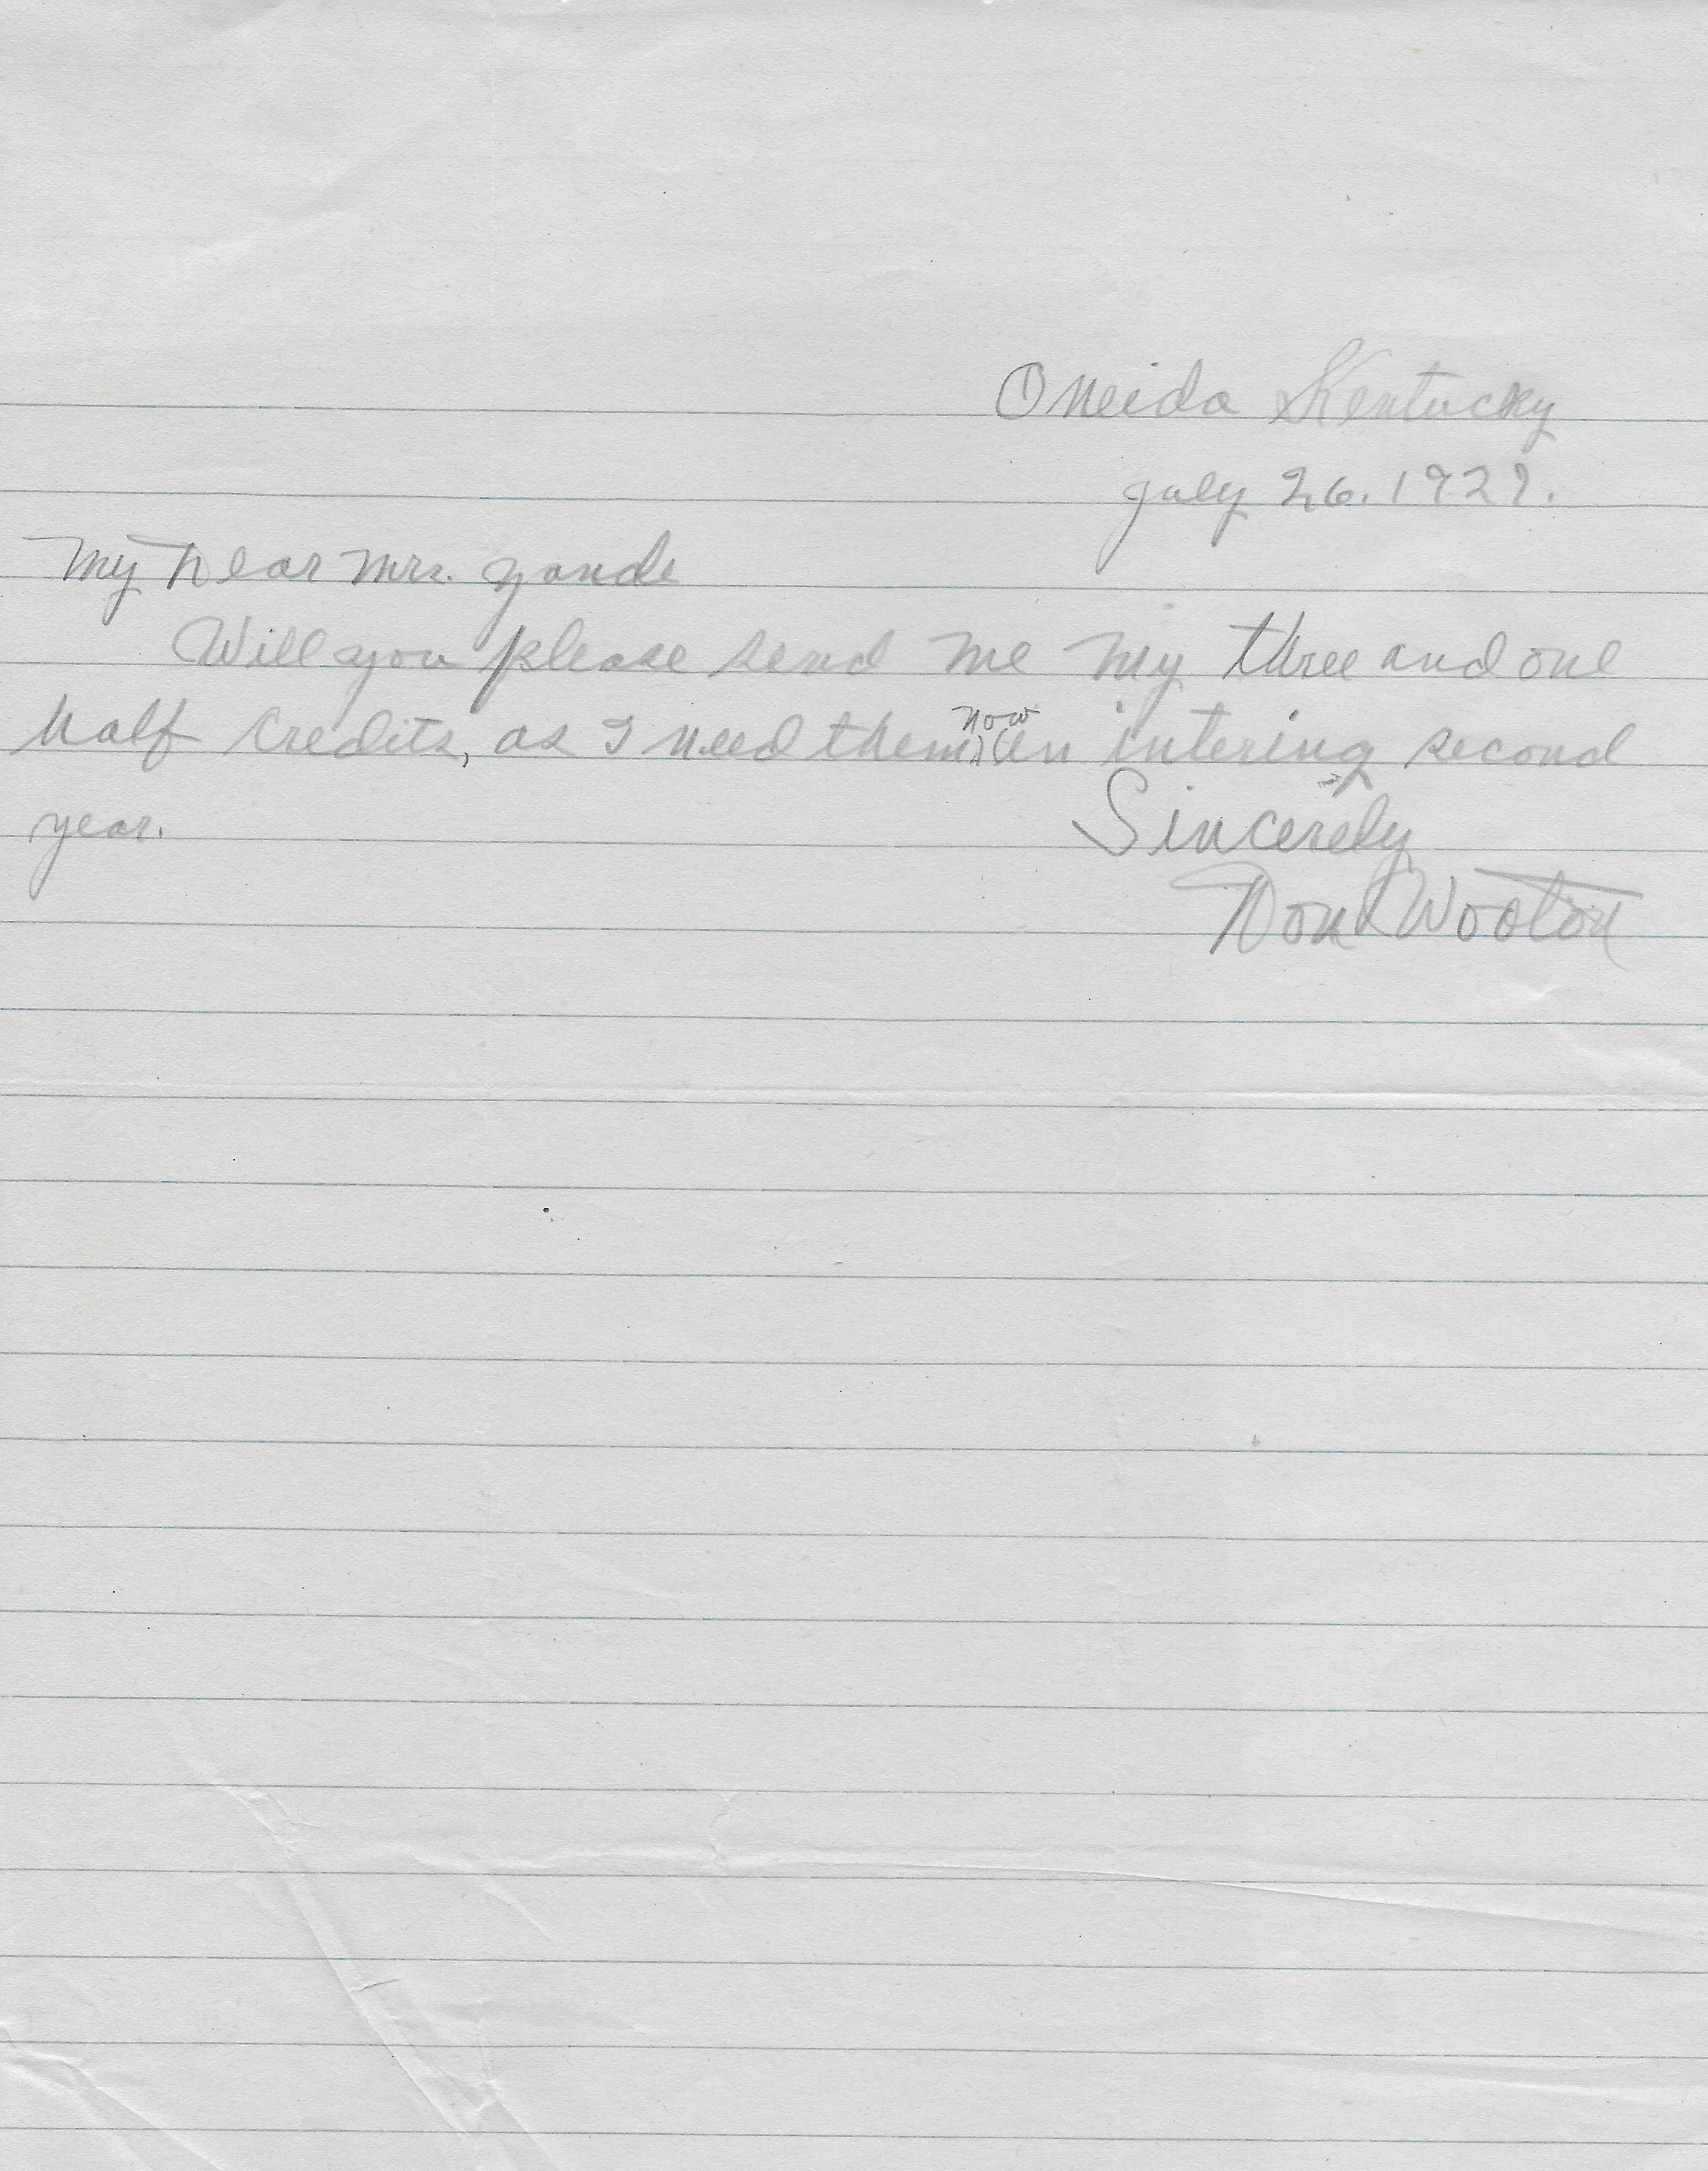 Oneida Kentucky
July 26. 1929.
My Dear Mrs. Zande
Will you please send me my three and one
half credits, as I need them now in intering second
year.
Sincerely
Don Wooton